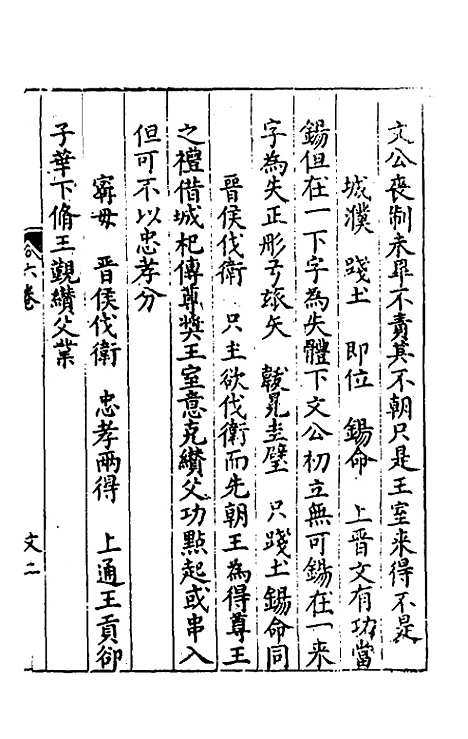 文公喪制未畢不責其不朝只是王室來得不是
城濮 踐土 即位 錫命 上晉文有功當
錫但在一下字為失體下文公初立無可錫在一來
字為失正彤弓玈矢 韍冕圭璧 只踐土錫命同
晉侯伐衛 只主欲伐衛而先朝王為得尊王
之禮借城杞傳尊獎王室意克纘父功點起或串入
但可不以忠孝分
甯毋 晉侯伐衛 忠孝兩得 上通王貢卻
子華下脩王覲纘父業
六卷
文二